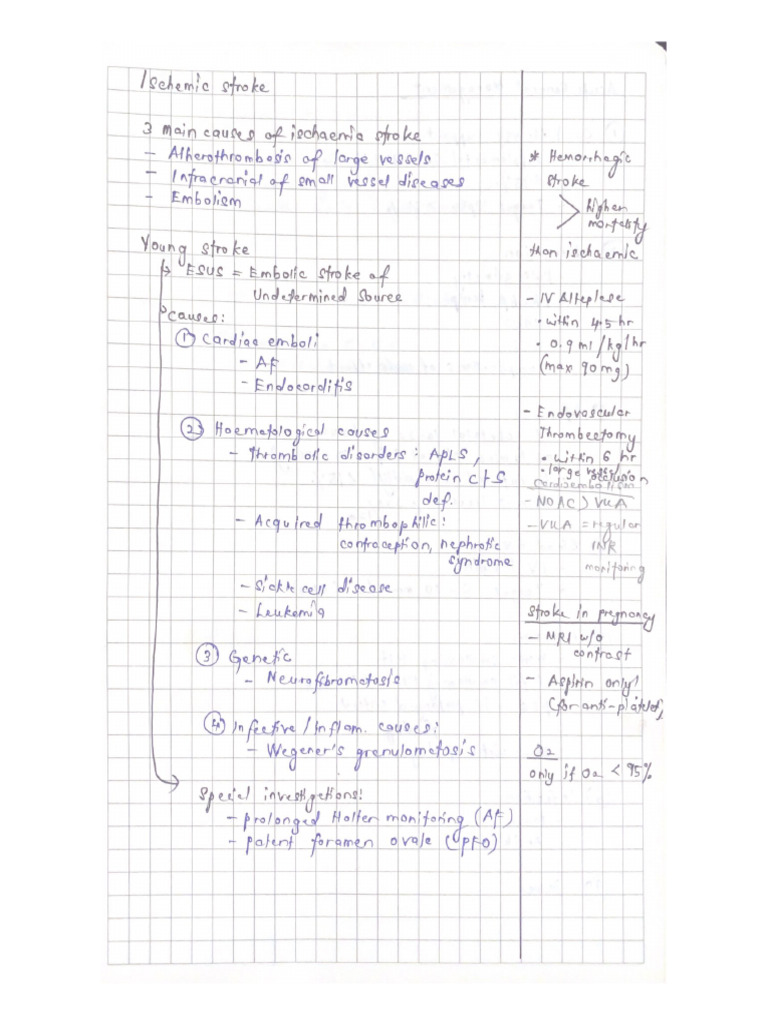 Ischemic stroke
3 main causes of ischaemia stroke
- Atherothrombosis of large vessels
- Intracranial of small vessel diseases
- Embolism
Young stroke
ESUS = Embolic stroke of
Undetermined Source
causes:
① Cardiac emboli
- AF
- Endocarditis
② Haematological causes
- Thrombotic disorders: APLS,
protein C + S
def.
- Acquired thrombophilic:
contraception, nephrotic
syndrome
- Sickle cell disease
- Leukemia
③ Genetic
- Neurofibromatosis
④ Infective / Inflam. causes:
- Wegener's granulomatosis
Special investigations:
- prolonged Holter monitoring (AF)
- patent foramen ovale (PFO)
* Hemorrhagic
stroke
> higher
mortality
than ischaemic
- IV Alteplase
• within 4.5 hr
• 0.9 ml/kg/hr
(max 90mg)
- Endovascular
Thrombectomy
• within 6 hr
• large vessel
occlusion
Cardioembolism
- NOAC > VKA
- VKA = regular
INR
monitoring
Stroke in pregnancy
- MRI w/o
contrast
- Aspirin only!
(for anti-platelet)
O2
only if O2 < 95%